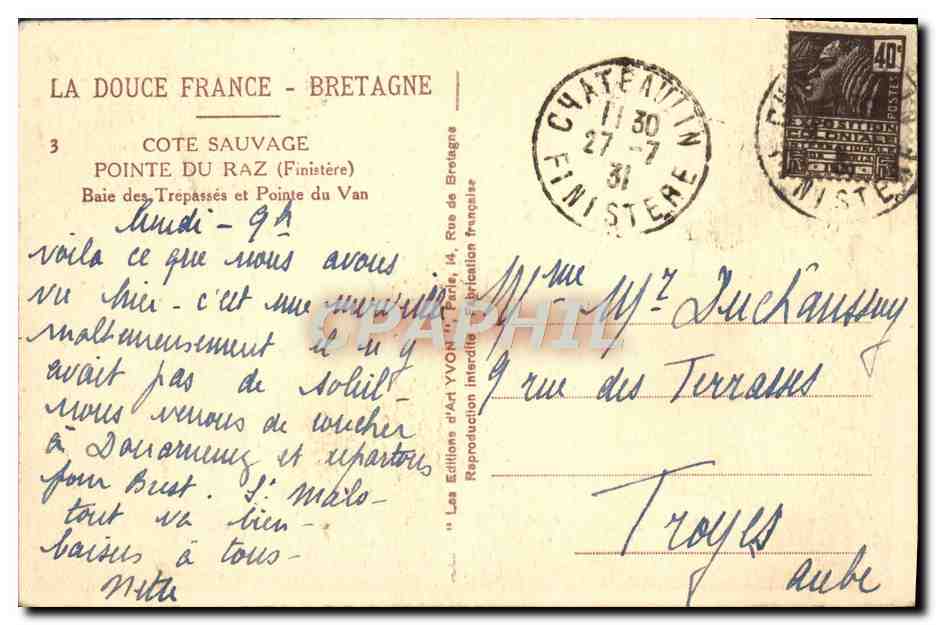 LA DOUCE FRANCE - BRETAGNE
3 COTE SAUVAGE
POINTE DU RAZ (Finistère)
Baie des Trépassés et Pointe du Van
lundi - 9h
voila ce que nous avons
vu hier - c'est une merveille
malheureusement il n'y
avait pas de soleil -
nous venons de coucher
à Douarnenez et repartons
pour Brest. St Malo -
tout va bien -
baisers à tous -
" Les Editions d'Art YVON ", Paris, 14, Rue de Bretagne
Reproduction interdite Fabrication française
CHATEAULIN
11 30
27 -7
31
FINISTERE
40c
POSTES
EXPOSITION
COLONIALE
INTERNATIONALE
FINISTERE
Mme - Mr Duchaussoy
9 rue des Terrasses
Troyes
aube
CPAPHIL